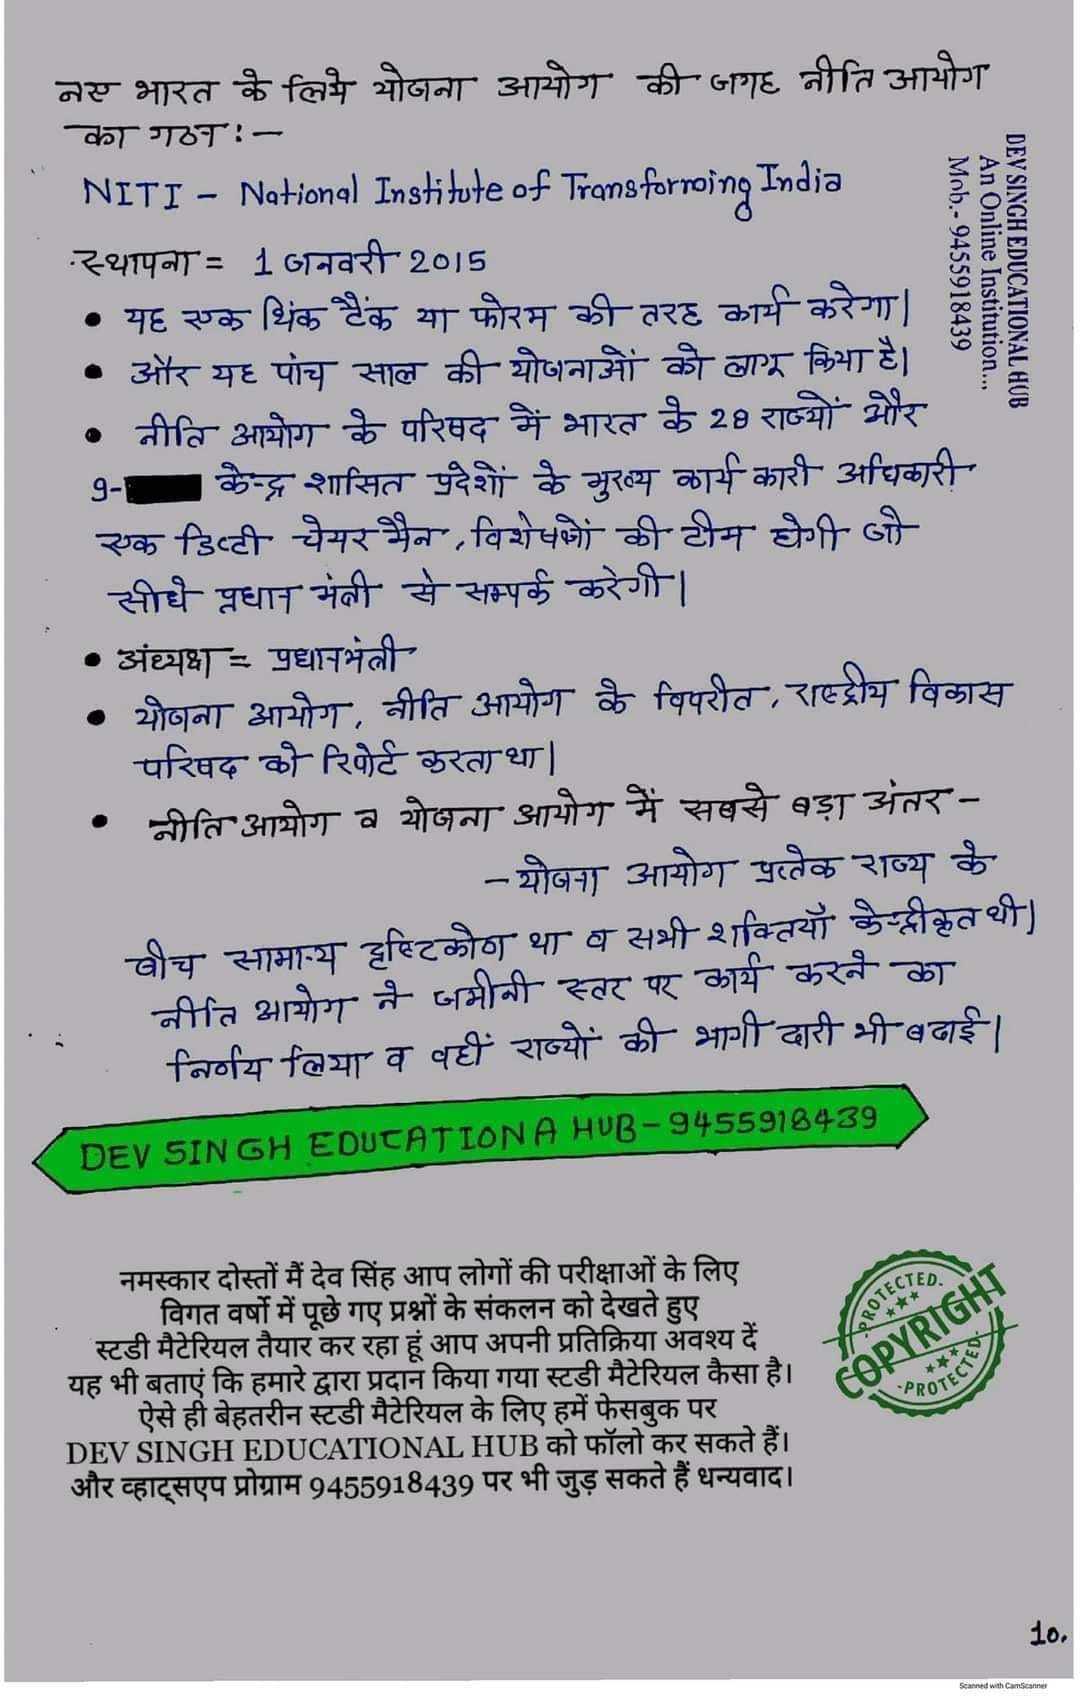 नए भारत के लिये योजना आयोग की जगह नीति आयोग
का गठन :-
NITI - National Institute of Transforming India
स्थापना = 1 जनवरी 2015
• यह एक थिंक टैंक या फोरम की तरह कार्य करेगा|
• और यह पांच साल की योजनाओं को लागू किया है|
• नीति आयोग के परिषद में भारत के 28 राज्यों और
9- केन्द्र शासित प्रदेशों के मुख्य कार्य कारी अधिकारी
एक डिप्टी चेयर मैन, विशेषज्ञों की टीम होगी जो
सीधे प्रधान मंत्री से सम्पर्क करेगी|
• अंध्यक्ष = प्रधानमंत्री
• योजना आयोग, नीति आयोग के विपरीत, राष्ट्रीय विकास
परिषद को रिपोर्ट करता था|
• नीति आयोग व योजना आयोग में सबसे बड़ा अंतर -
- योजना आयोग प्रतेक राज्य के
बीच सामान्य दृष्टिकोण था व सभी शक्तियाँ केन्द्रीकृत थी|
नीति आयोग ने जमीनी स्तर पर कार्य करने का
निर्णय लिया व वहीं राज्यों की भागी दारी भी बढाई|
DEV SINGH EDUCATIONAL HUB
An Online Institution...
Mob.- 9455918439
DEV SINGH EDUCATIONA HUB - 9455918439
नमस्कार दोस्तों मैं देव सिंह आप लोगों की परीक्षाओं के लिए
विगत वर्षो में पूछे गए प्रश्नों के संकलन को देखते हुए
स्टडी मैटेरियल तैयार कर रहा हूं आप अपनी प्रतिक्रिया अवश्य दें
यह भी बताएं कि हमारे द्वारा प्रदान किया गया स्टडी मैटेरियल कैसा है।
ऐसे ही बेहतरीन स्टडी मैटेरियल के लिए हमें फेसबुक पर
DEV SINGH EDUCATIONAL HUB को फॉलो कर सकते हैं।
और व्हाट्सएप प्रोग्राम 9455918439 पर भी जुड़ सकते हैं धन्यवाद।
PROTECTED
COPYRIGHT
PROTECTED
10.
Scanned with CamScanner